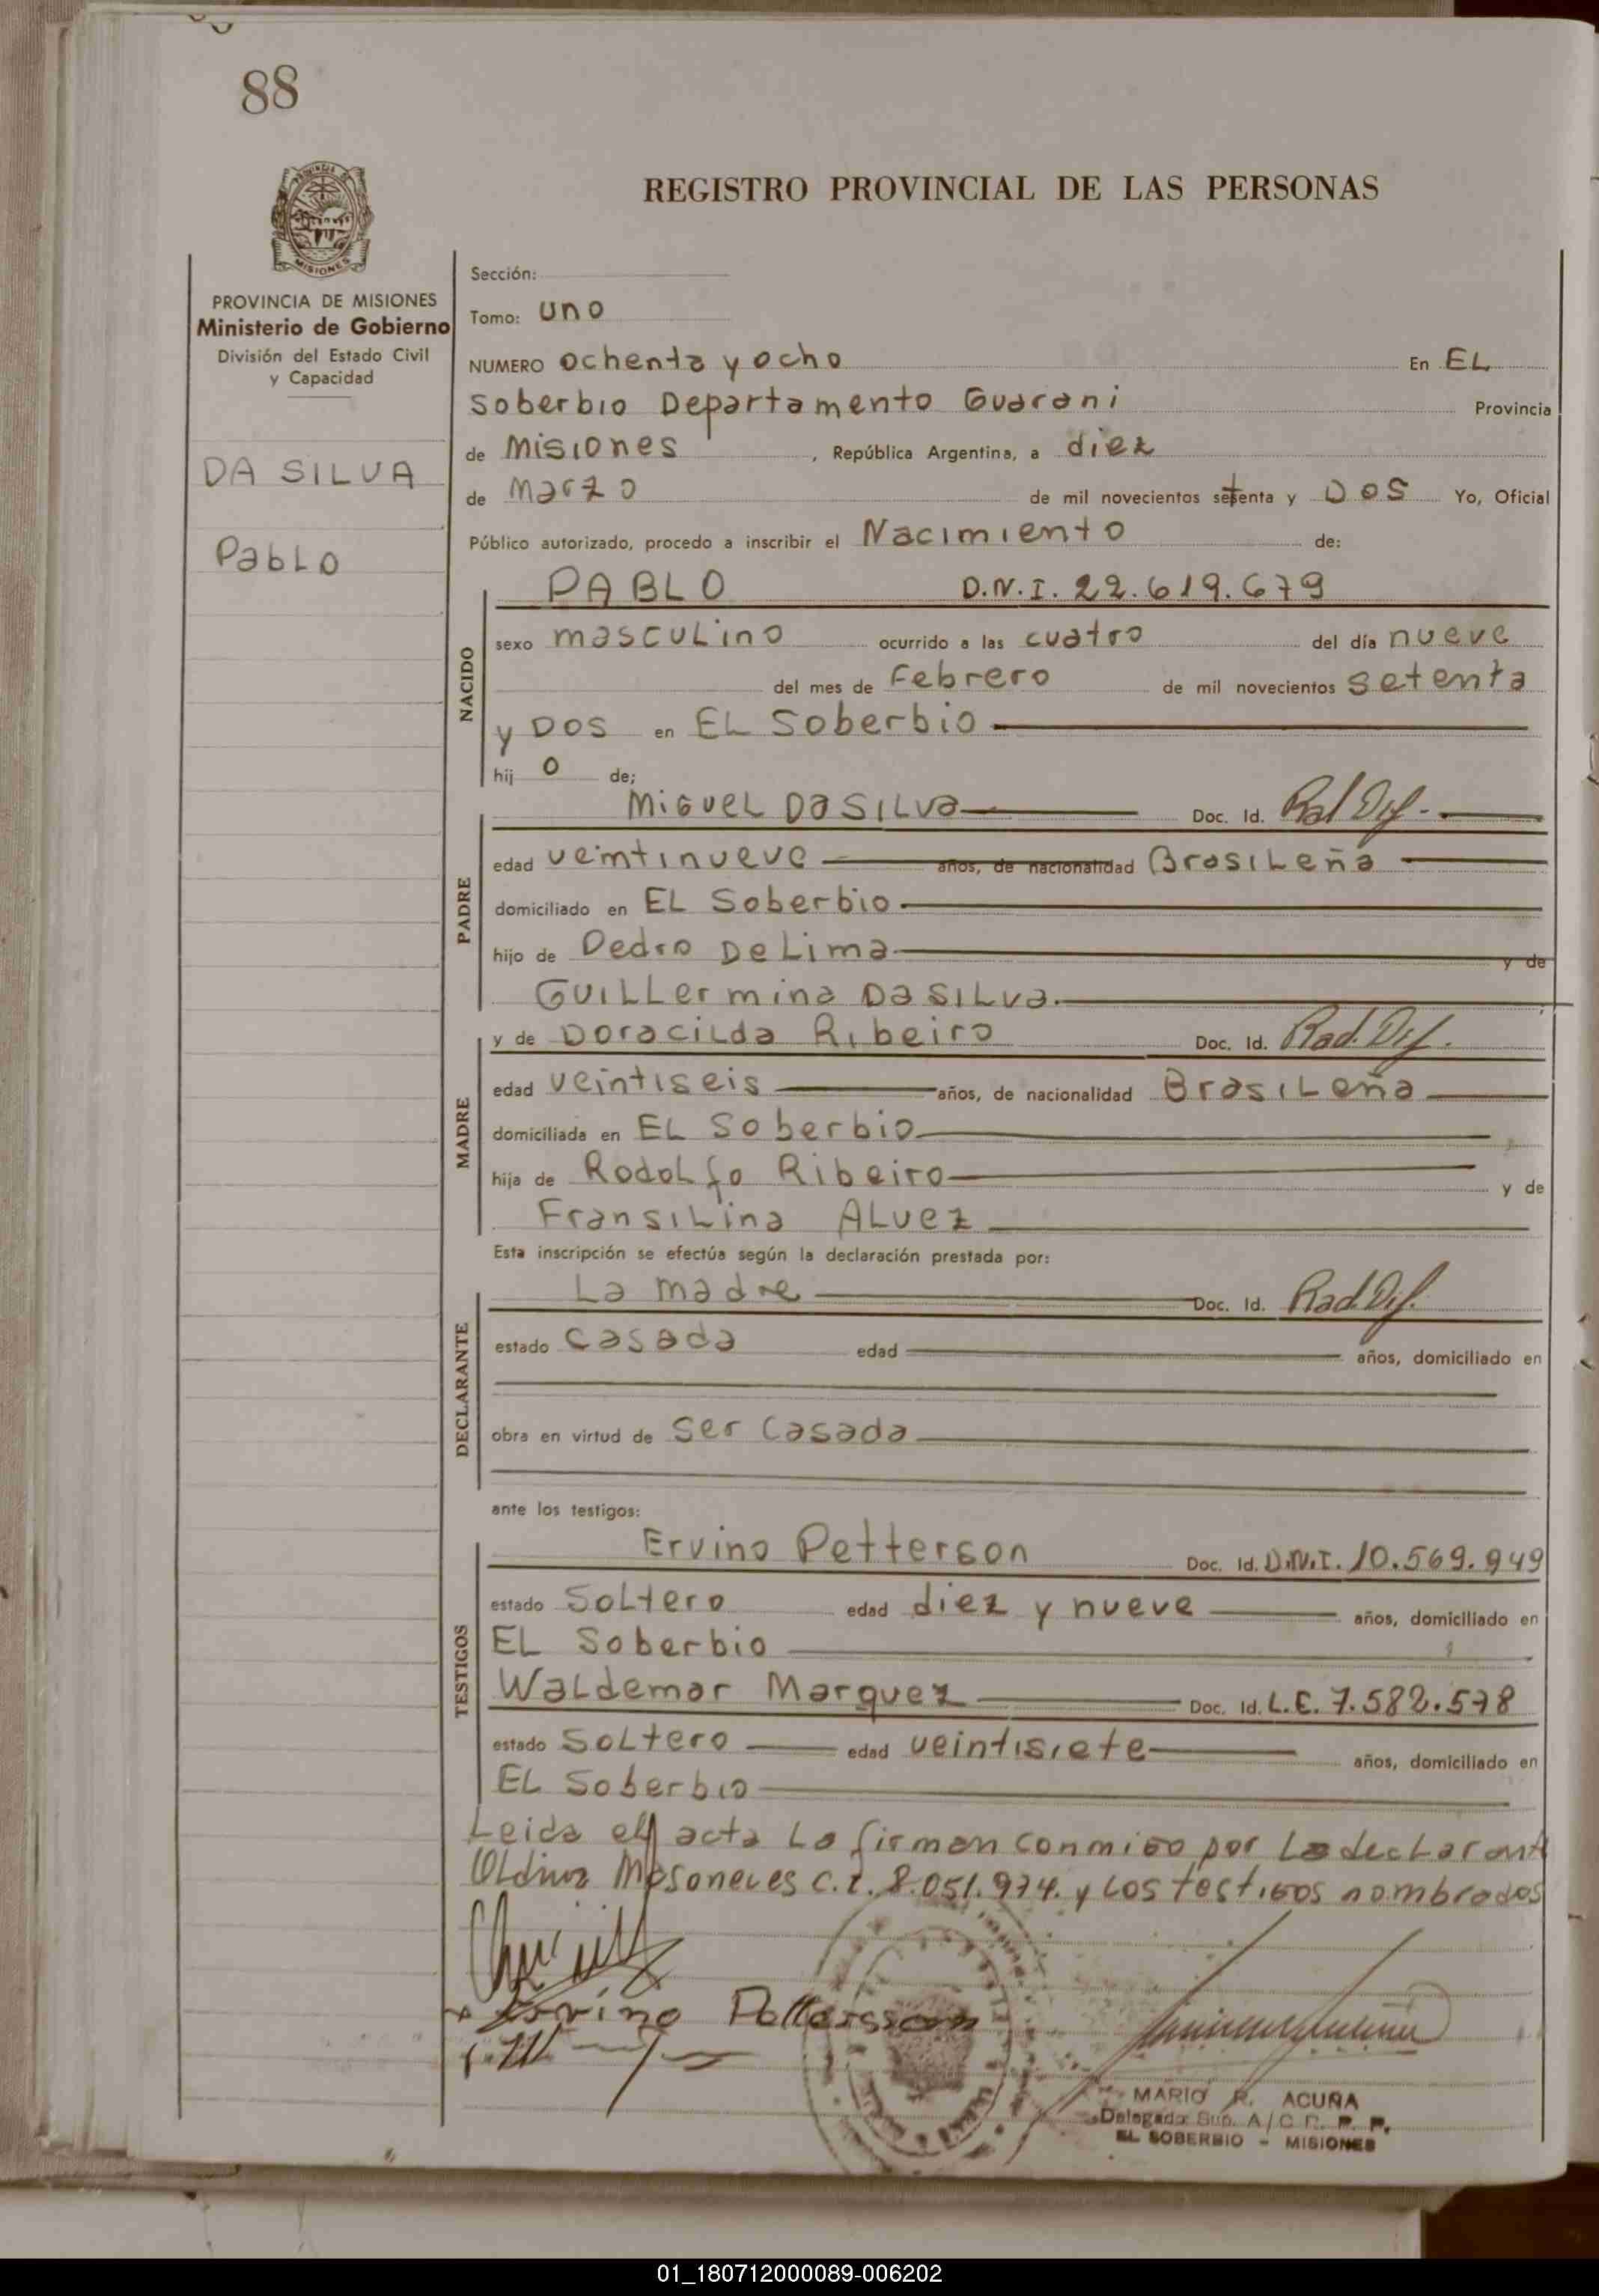 88
REGISTRO PROVINCIAL DE LAS PERSONAS
MISIONES
PROVINCIA DE MISIONES
Ministerio de Gobierno
División del Estado Civil
y Capacidad
DA SILVA
Pablo
Sección:
Tomo: uno
NUMERO ochenta y ocho En EL
Soberbio Departamento Guarani Provincia
de Misiones , República Argentina, a diez
de Marzo de mil novecientos setenta y DOS Yo, Oficial
Público autorizado, procedo a inscribir el Nacimiento de:
NACIDO
PABLO D.N.I. 22.619.679
sexo masculino ocurrido a las cuatro del día nueve
del mes de Febrero de mil novecientos setenta
y DOS en EL Soberbio
hij o de;
PADRE
Miguel Da SILVa Doc. Id.
edad veintinueve años, de nacionalidad Brasileña
domiciliado en EL Soberbio
hijo de Pedro De Lima y de
Guillermina Da SILVa.
MADRE
y de Doracilda Ribeiro Doc. Id. Rad. Dif.
edad veintiseis años, de nacionalidad Brasileña
domiciliada en EL Soberbio
hija de Rodolfo Ribeiro y de
Fransilina Alvez
Esta inscripción se efectúa según la declaración prestada por:
DECLARANTE
La madre Doc. Id. Rad. Dif.
estado casada edad años, domiciliado en
obra en virtud de ser casada
ante los testigos:
TESTIGOS
Ervino Petterson Doc. Id. D.N.I. 10.569.949
estado Soltero edad diez y nueve años, domiciliado en
EL Soberbio
Waldemar Marquez Doc. Id. L.E. 7.582.578
estado Soltero edad veintisiete años, domiciliado en
EL Soberbio
Leida el acta La firman conmigo por La declarant
C.I. 8.051.974. y Los testigos nombrados
Ervino Petterson
MARIO R. ACUÑA
Delegado Sup. A/C R. P. P.
EL SOBERBIO - MISIONES
01_180712000089-006202